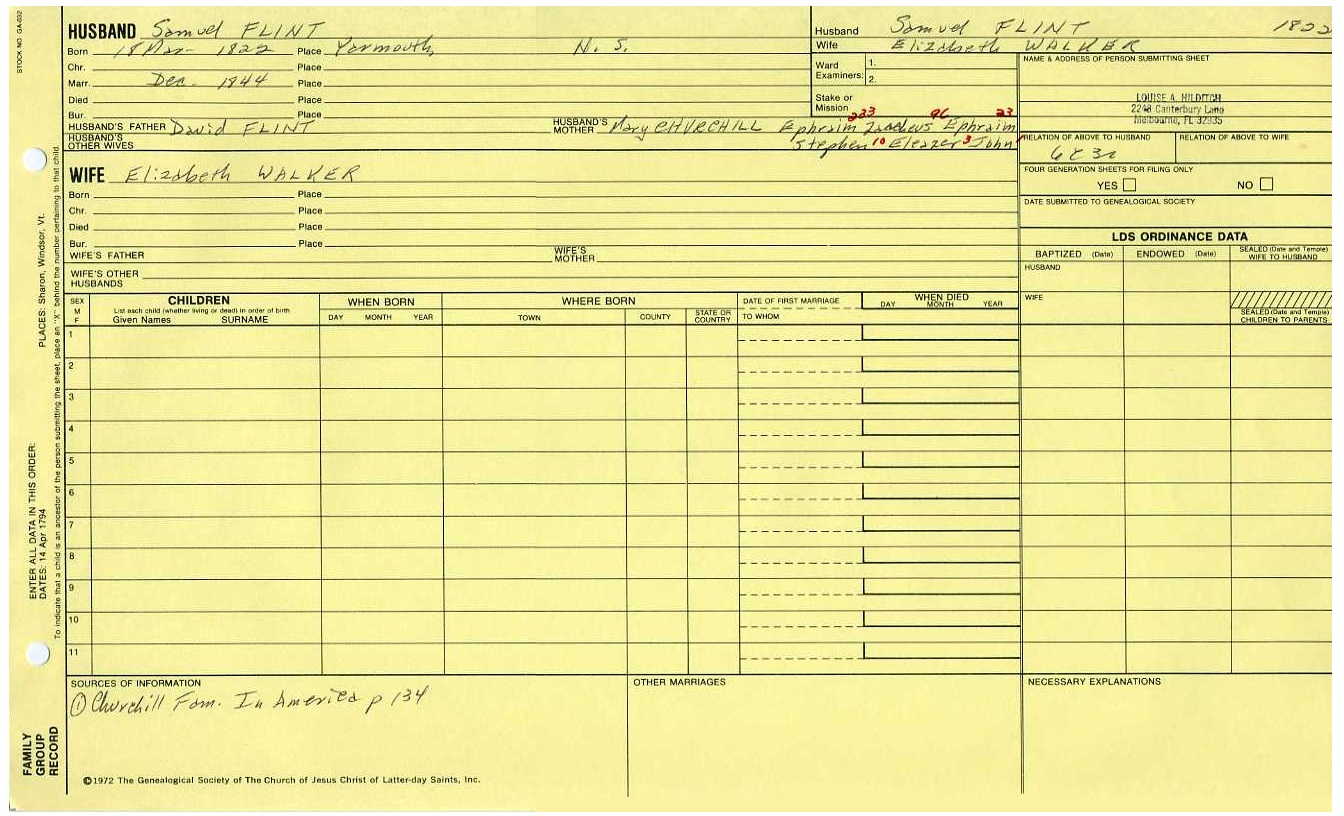 STOCK NO. GA-032
HUSBAND Samuel FLINT
Born 18 Mar 1822 Place Yarmouth, N. S.
Chr. Place
Marr. Dec 1844 Place
Died Place
Bur. Place
HUSBAND'S FATHER David FLINT HUSBAND'S MOTHER Mary CHURCHILL Ephraim 233 Zaccheus 96 Ephraim 23
HUSBAND'S OTHER WIVES Stephen 10 Eleazer 3 John 1
WIFE Elizabeth WALKER
Born Place
Chr. Place
Died Place
Bur. Place
WIFE'S FATHER WIFE'S MOTHER
WIFE'S OTHER HUSBANDS
Husband Samuel FLINT 1822
Wife Elizabeth WALKER
Ward Examiners: 1.
2.
Stake or Mission
NAME & ADDRESS OF PERSON SUBMITTING SHEET
LOUISE A. HILDITCH
2248 Canterbury Lane
Melbourne, FL 32935
RELATION OF ABOVE TO HUSBAND RELATION OF ABOVE TO WIFE
6C3R
FOUR GENERATION SHEETS FOR FILING ONLY
YES NO
DATE SUBMITTED TO GENEALOGICAL SOCIETY
LDS ORDINANCE DATA
BAPTIZED (Date) ENDOWED (Date) SEALED (Date and Temple) WIFE TO HUSBAND
HUSBAND
WIFE
SEALED (Date and Temple) CHILDREN TO PARENTS
SEX M F CHILDREN WHEN BORN WHERE BORN DATE OF FIRST MARRIAGE WHEN DIED
List each child (whether living or dead) in order of birth
Given Names SURNAME DAY MONTH YEAR TOWN COUNTY STATE OR COUNTRY TO WHOM DAY MONTH YEAR
1
2
3
4
5
6
7
8
9
10
11
SOURCES OF INFORMATION OTHER MARRIAGES NECESSARY EXPLANATIONS
① Churchill Fam. In America p 134
©1972 The Genealogical Society of The Church of Jesus Christ of Latter-day Saints, Inc.
FAMILY GROUP RECORD
ENTER ALL DATA IN THIS ORDER:
DATES: 14 Apr 1794 PLACES: Sharon, Windsor, Vt.
To indicate that a child is an ancestor of the person submitting the sheet, place an "X" behind the number pertaining to that child.